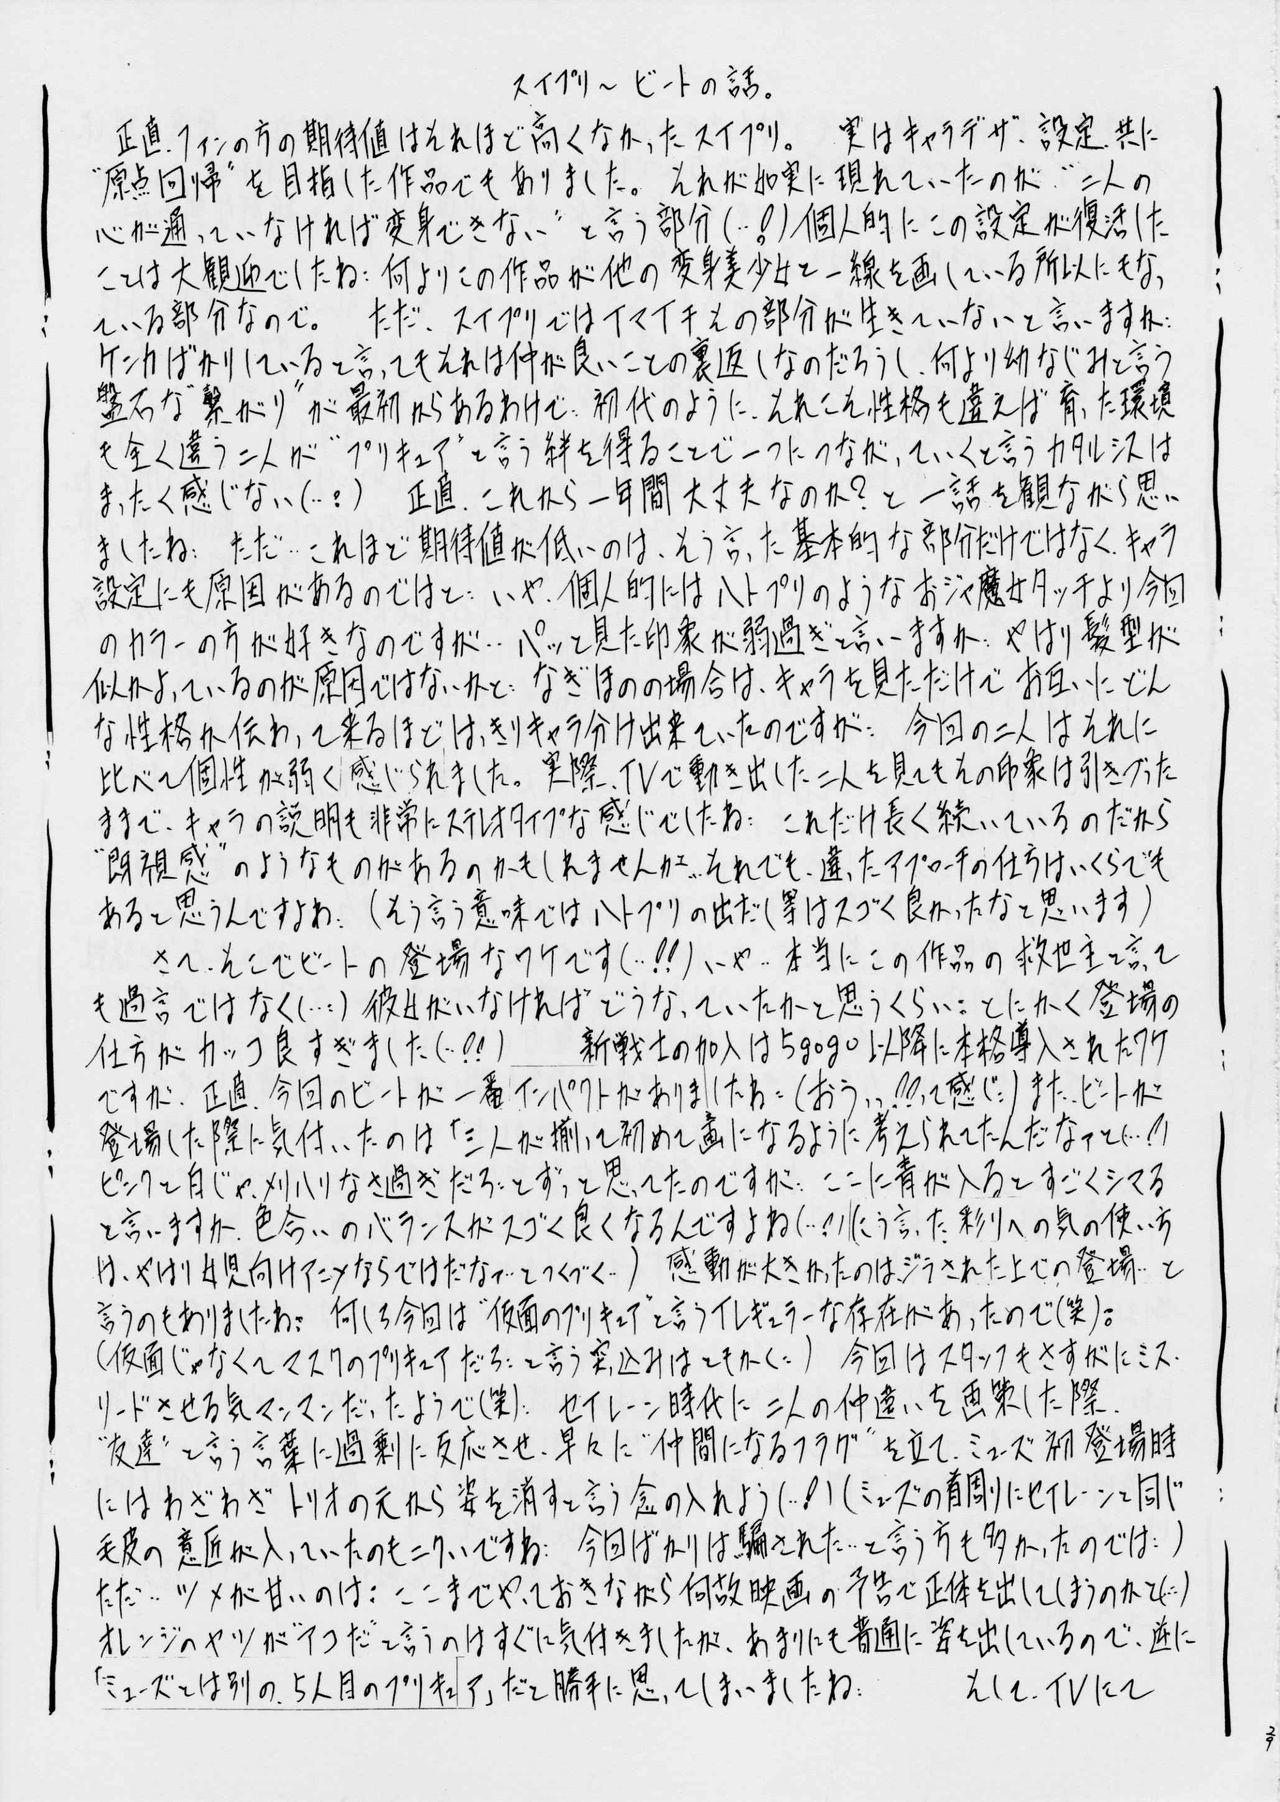 スイプリ〜ビートの話。
正直、ファンの方の期待値はそれほど高くなかったスイプリ。 実はキャラデザ、設定、共に
"原点回帰"を目指した作品でもありました。それが如実に現れていたのが、"二人の
心が通っていなければ変身できない"と言う部分(…!)個人的にこの設定が復活した
ことは大観迎でしたね…何よりこの作品が他の変身美少女と一線を画している所以にもなっ
ている部分なので。 ただ、スイプリではイマイチその部分が生きていないと言いますか…
ケンカばかりしていると言ってもそれは仲が良いことの裏返しなのだろうし、何より幼なじみと言う
盤石な"繋がり"が最初からあるわけで… 初代のように、それこそ性格も違えば育った環境
も全く違う二人が"プリキュア"と言う絆を得ることで一つにつながっていくと言うカタルシスは
まったく感じない(…!) 正直、これから一年間大丈夫なのか?と一話を観ながら思い
ましたね… ただ…これほど期待値が低いのは、そう言った基本的な部分だけではなく、キャラ
設定にも原因があるのではと… いや、個人的にはハトプリのようなおジャ魔女タッチより今回
のカラーの方が好きなのですが… パッと見た印象が弱過ぎと言いますか… やはり髪型が
似かよっているのが原因ではないかと… なぎほのの場合は、キャラを見ただけでお互いにどん
な性格か伝わって来るほどはっきりキャラ分け出来ていたのですが… 今回の二人はそれに
比べて個性が弱く感じられました。実際、TVで動き出した二人を見てもその印象は引きづった
ままで、キャラの説明も非常にステレオタイプな感じでしたね… これだけ長く続いているのだから
"既視感"のようなものがあるのかもしれませんが…それでも、違ったアプローチの仕方はいくらでも
あると思うんですよね… (そう言う意味ではハトプリの出だし等はスゴく良かったなと思います)
さて、そこでビートの登場なワケです(…!!)いや…本当にこの作品の救世主と言って
も過言ではなく(…)彼女がいなければどうなっていたかと思うくらい…とにかく登場の
仕方がカッコ良すぎました(…!!) 新戦士の加入は5gogo以降に本格導入されたワケ
ですが、正直、今回のビートが一番インパクトがありましたね…(おうっっ!!?って感じ…)また、ビートが
登場した際に気付いたのは「三人が揃って初めて画になるように考えられてたんだなァと(…!)
ピンクと白じゃ、メリハリなさ過ぎだろ…とずっと思ってたのですが… ここに青が入るとすごくシマる
と言いますか、色合いのバランスがスゴく良くなるんですよね(…!)(こう言った彩りへの気の使い方
は、やはり女児向けアニメならではだなァ…とつくづく…) 感動が大きかったのは、ジラされた上での登場…と
言うのもありましたね… 何しろ今回は"仮面のプリキュア"と言うイレギュラーな存在があったので(笑)…
(仮面じゃなくてマスクのプリキュアだろ…と言う突っ込みはともかく…) 今回はスタッフもさすがにミス・
リードさせる気マンマンだったようで(笑)… セイレーン時代に二人の仲違いを画策した際、
"友達"と言う言葉に過剰に反応させ、早々に"仲間になるフラグ"を立て、ミューズ初登場時
にはわざわざトリオの元から姿を消すと言う念の入れよう(…!)(ミューズの首周りにセイレーンと同じ
毛皮の意匠が入っていたのもニクいですね… 今回ばかりは騙された…と言う方も多かったのでは…)
ただ… ツメが甘いのは…ここまでやっておきながら何故映画の予告で正体を出してしまうのかと(…)
オレンジのヤツが"アコ"だと言うのはすぐに気付きましたが、あまりにも普通に姿を出しているので、逆に
「ミューズとは別の、5人目のプリキュア」だと勝手に思ってしまいましたね… そして、TVにて
29